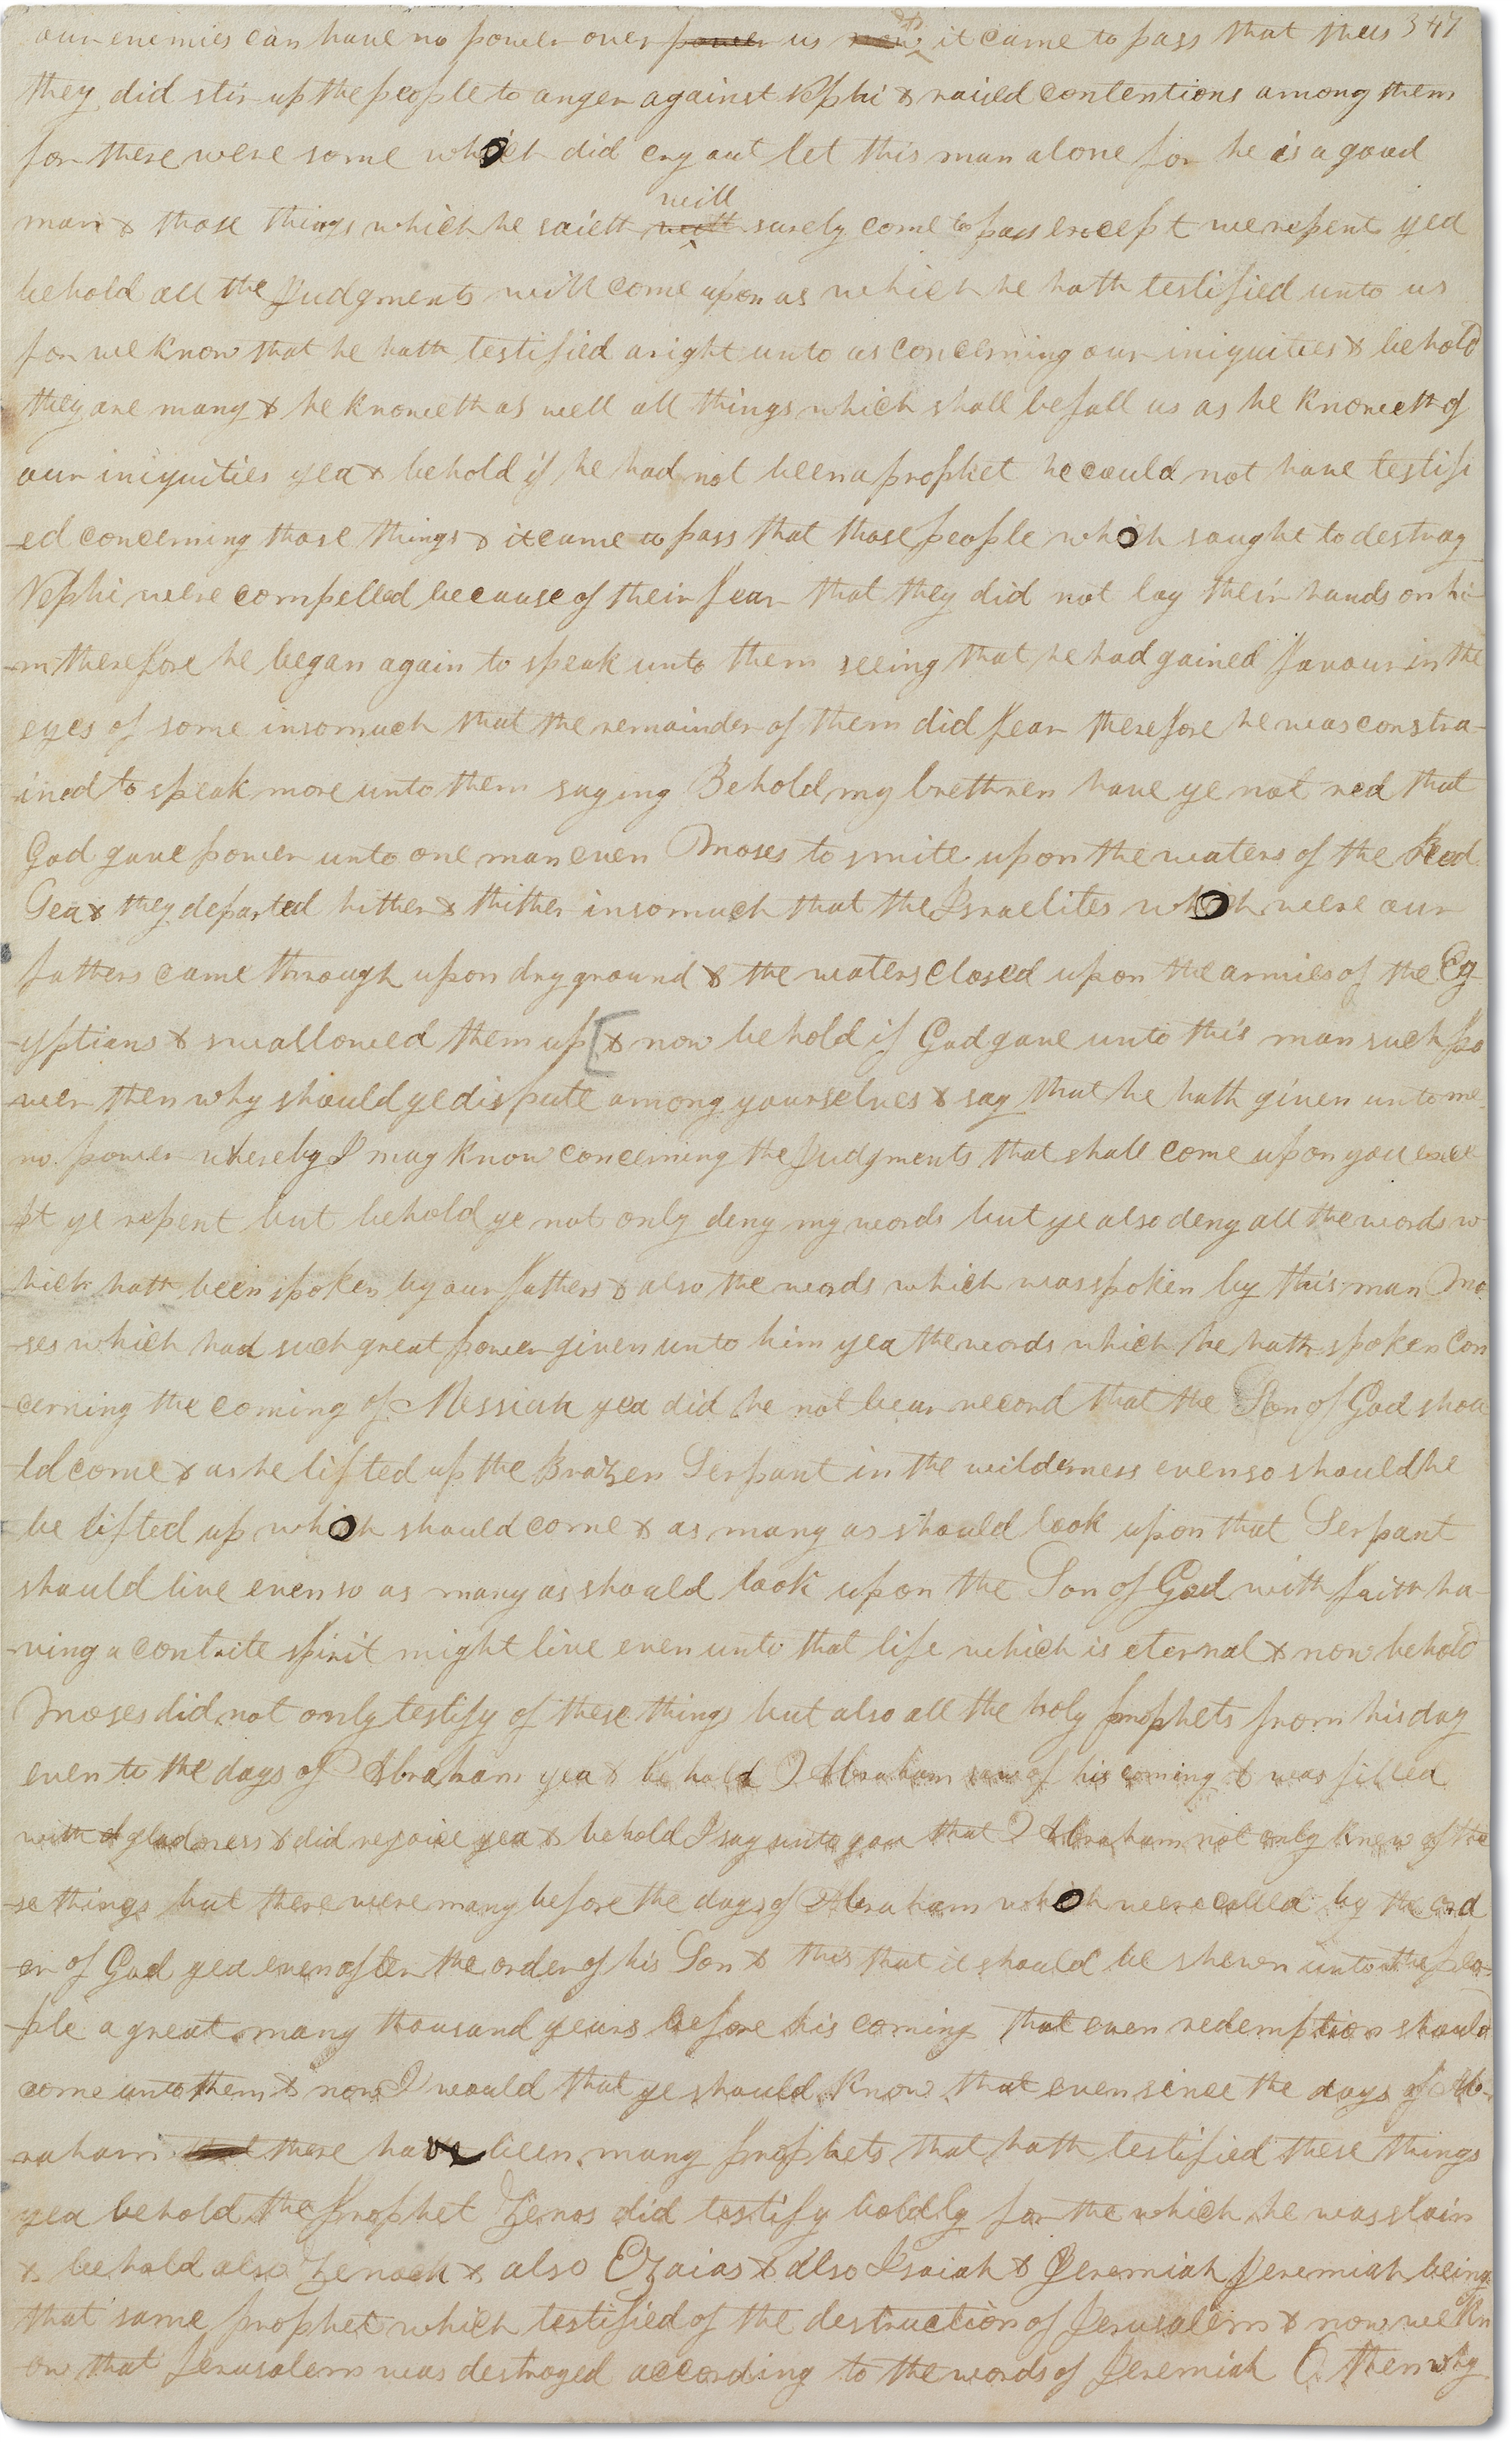 our enemies can have no power over power us now & it came to pass that thus 347
they did stir up the people to anger against Nephi & raised contentions among them
for there were some which did cry out let this man alone for he is a good
man & those things which he saieth will surely come to pass except we repent yea
behold all the Judgments will come upon us which he hath testified unto us
for we know that he hath testified aright unto us concerning our iniquities & behold
they are many & he knoweth as well all things which shall befall us as he knoweth of
our iniquities yea & behold if he had not been a prophet he could not have testifi
-ed concerning those things & it came to pass that those people which saught to destroy
Nephi were compelled because of their fear that they did not lay their hands on hi
-m therefore he began again to speak unto them seeing that he had gained favour in the
eyes of some insomuch that the remainder of them did fear therefore he was constra-
-ined to speak more unto them saying Behold my brethren have ye not red that
God gave power unto one man even Moses to smite upon the waters of the Red
Sea & they departed hither & thither insomuch that the Israelites which were our
fathers came through upon dry ground & the waters closed upon the armies of the Eg-
-yptians & swallowed them up [& now behold if God gave unto this man such po
-wer then why should ye dispute among yourselves & say that he hath given unto me
no power whereby I may know concerning the Judgments that shall come upon you exce
-pt ye repent but behold ye not only deny my words but ye also deny all the words w
hich hath been spoken by our fathers & also the words which was spoken by this man Mo
-ses which had such great power given unto him yea the words which he hath spoken con
-cerning the coming of Messiah yea did he not bear record that the Son of God shou
-ld come & as he lifted up the Brazen Serpant in the wilderness even so should he
be lifted up which should come & as many as should look upon that Serpant
should live even so as many as should look upon the Son of God with faith ha-
-ving a contrite spirit might live even unto that life which is eternal & now behold
Moses did not only testify of these things but also all the holy prophets from his day
even to the days of Abraham yea & behold Abraham saw of his coming & was filled
with gladness & did rejoice yea & behold I say unto you that Abraham not only knew of the
-se things but there were many before the days of Abraham which were called by the ord
-er of God yea even after the order of his Son & this that it should be shewn unto the peo-
-ple a great many thousand years before his coming that even redemption should
come unto them & now I would that ye should know that even since the days of Ab-
-raham that there have been many prophets that hath testified these things
yea behold the prophet Zenos did testify boldly for the which he was slain
& behold also Zenock & also Ezaias & also Isaiah & Jeremiah Jeremiah being
that same prophet which testified of the destruction of Jerusalem & now we kn
-ow that Jerusalem was destroyed according to the words of Jeremiah O then why